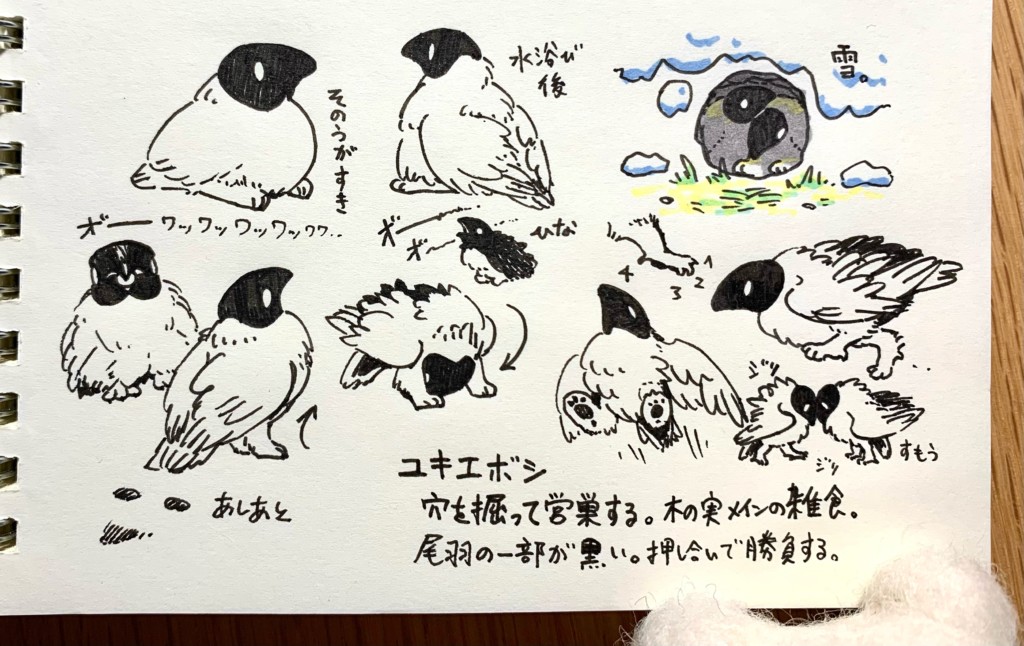 そのうがすき
水浴び
後
雪。
ギー
ワッワッワッワッワワ..
ギー
ギー
ひな
1
2
3
4
ジリ
ジリ
すもう
あしあと
ユキエボシ
穴を掘って営巣する。木の実メインの雑食。
尾羽の一部が黒い。押し合いで勝負する。